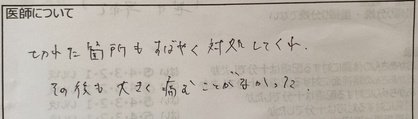 医師について
切れた箇所もすばやく対処してくれ、
その後も大きく痛むことがなかった。